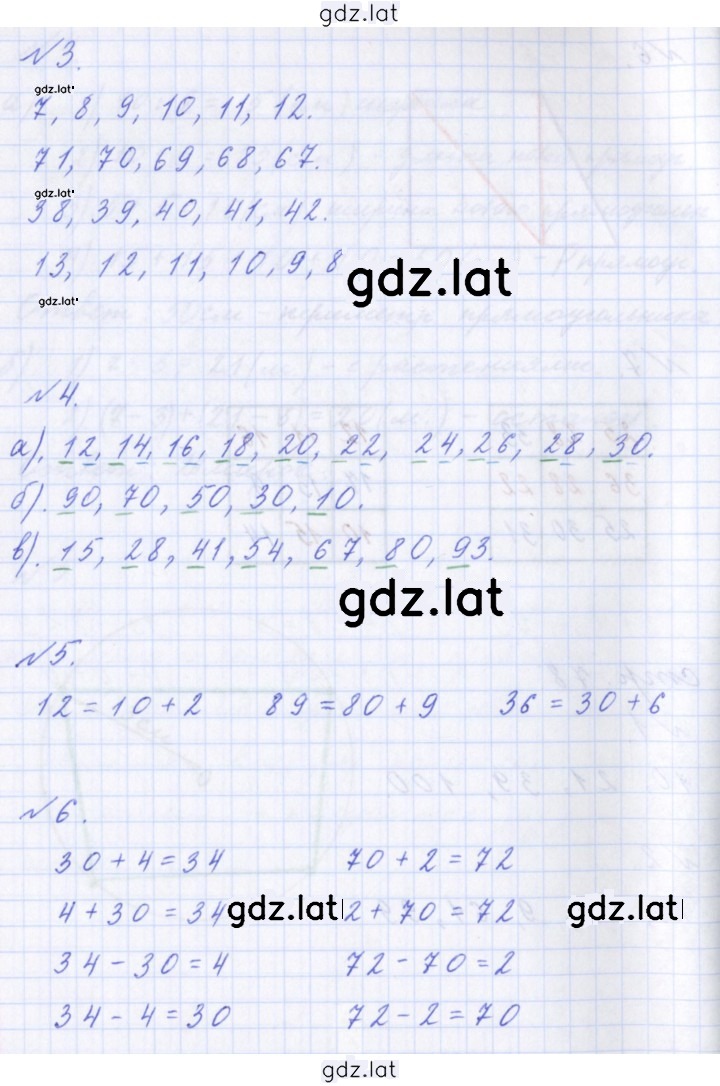 gdz.lat
№3.
gdz.lat
7, 8, 9, 10, 11, 12.
71, 70, 69, 68, 67.
gdz.lat
38, 39, 40, 41, 42.
13, 12, 11, 10, 9, 8
gdz.lat
gdz.lat
№4.
а). 12, 14, 16, 18, 20, 22, 24, 26, 28, 30.
б). 90, 70, 50, 30, 10.
в). 15, 28, 41, 54, 67, 80, 93.
gdz.lat
№5.
12 = 10 + 2 89 = 80 + 9 36 = 30 + 6
№6.
30 + 4 = 34 70 + 2 = 72
4 + 30 = 34 gdz.lat 2 + 70 = 72 gdz.lat
34 - 30 = 4 72 - 70 = 2
34 - 4 = 30 72 - 2 = 70
gdz.lat